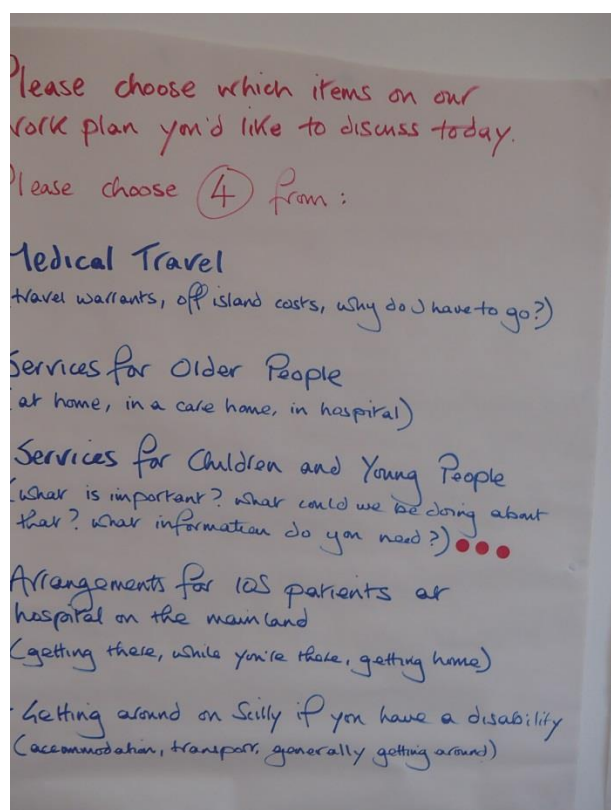 Please choose which items on our
work plan you'd like to discuss today.
Please choose 4 from:
Medical Travel
(travel warrants, off island costs, why do I have to go?)
Services for Older People
(at home, in a care home, in hospital)
Services for Children and Young People
(what is important? what could we be doing about
that? what information do you need?)
Arrangements for IOS patients at
hospital on the mainland
(getting there, while you're there, getting home)
Getting around on Scilly if you have a disability
(accommodation, transport, generally getting around)